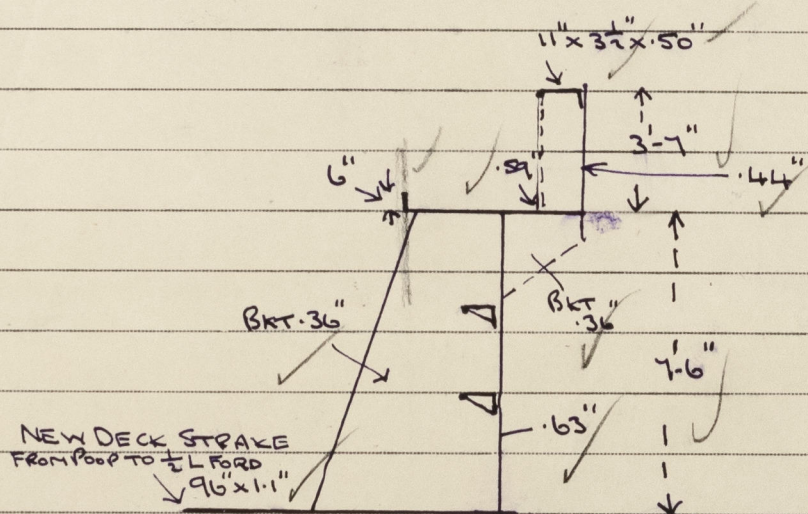 11" x 3½" x .50"
3'-7"
6"
.59"
.44"
BKT .36"
BKT
.36"
7'-6"
.63"
NEW DECK STRAKE
FROM POOP TO ½ L FORD
96" x 1.1"